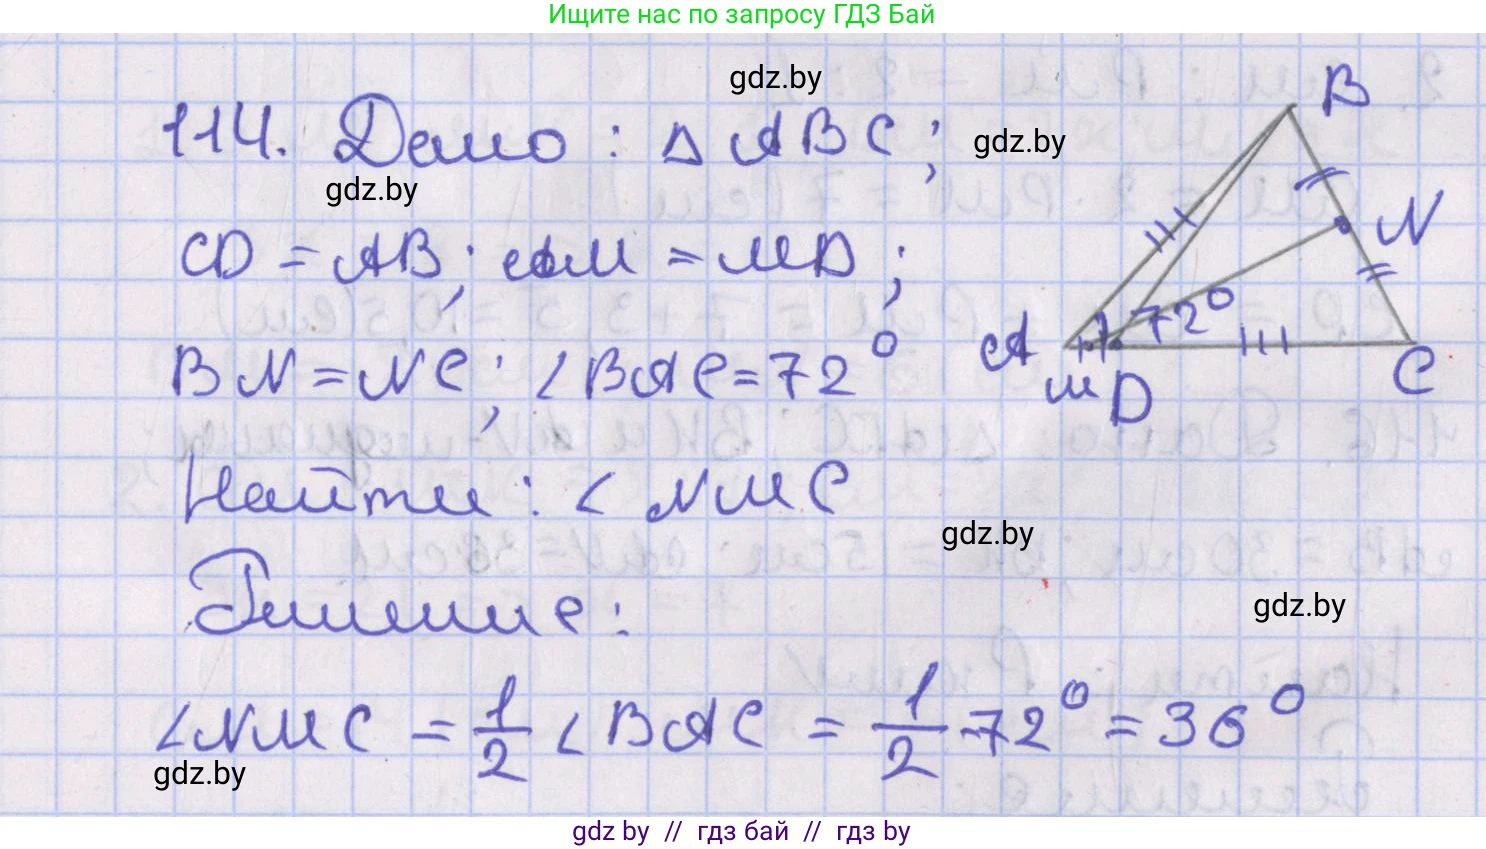 Ищите нас по запросу ГДЗ Бай
gdz.by
114. Дано: △ ABC;
gdz.by
gdz.by
CD = AB; AM = MD;
BN = NC; ∠BAC = 72°
Найти: ∠NMC
gdz.by
Решение:
gdz.by
∠NMC = 1/2 ∠BAC = 1/2 · 72° = 36°
gdz.by
B
N
72°
A
M
D
C
gdz by // гдз бай // гдз by